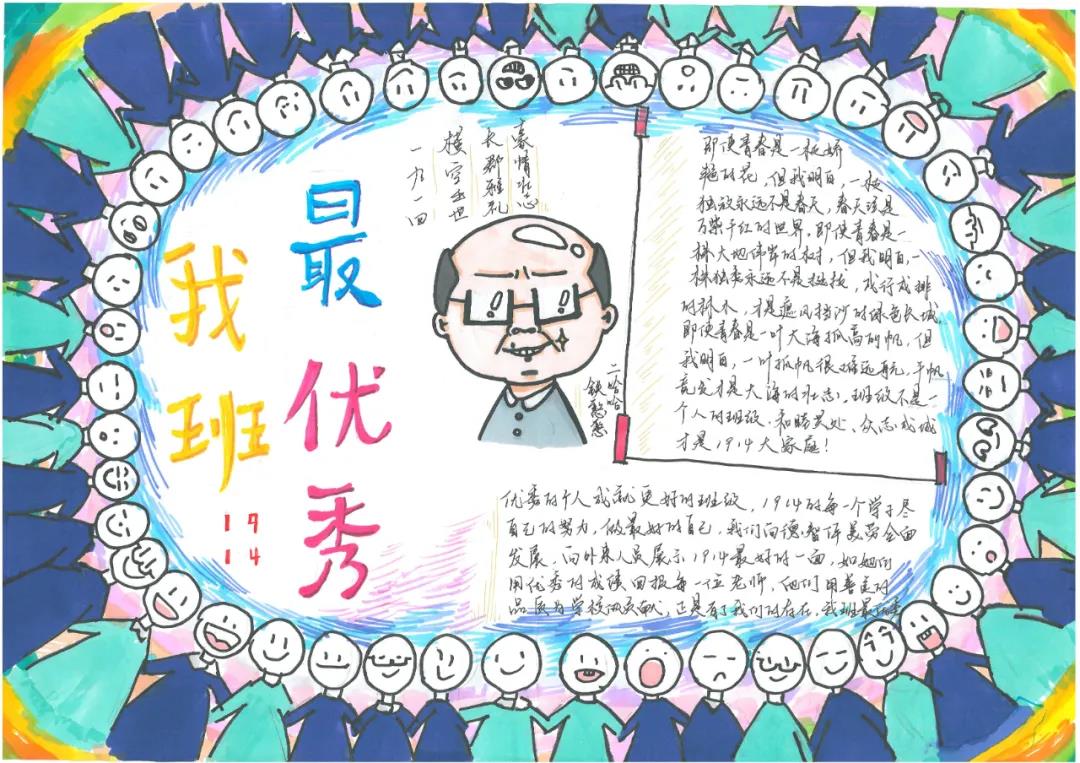 我班
最优秀
19
14
豪情壮志
长郡雅礼
横空出世
一九一四
二哈哈
铁憨憨
即使青春是一枝娇
艳的花,但我明白,一枝
独放永远不是春天,春天该是
万紫千红的世界。即使青春是一
株大地伟岸的树,但我明白,一
株独秀永远不是挺拔,成行成排
的林木,才是遮风挡沙的绿色长城。
即使青春是一叶大海孤高的帆,但
我明白,一叶孤帆很难远航,千帆
竞发才是大海的壮志,班级不是一
个人的班级,和睦共处、众志成城
才是1914大家庭!
优秀的个人成就更好的班级,1914的每一个学子尽
自己的努力,做最好的自己,我们向德智体美劳全面
发展,向外来人员展示1914最好的一面,如她们
用优秀的成绩回报每一位老师,他们用善良的
品质为学校做贡献,正是有了我们的存在,我班最优秀